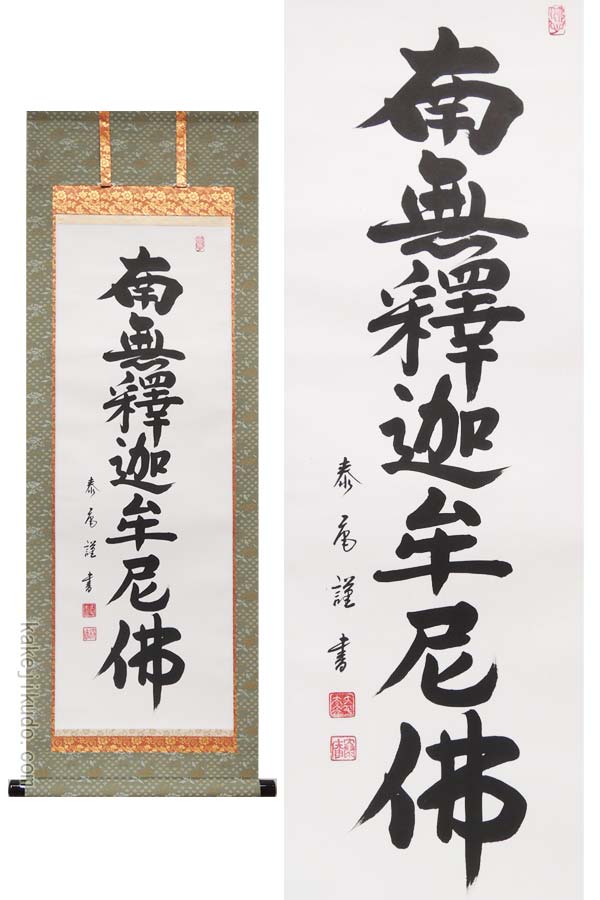 南無釋迦牟尼佛
泰
謹書
南無釋迦牟尼佛
泰
謹書
kakejikudo.com